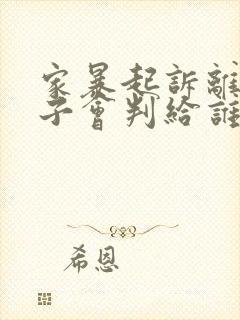 家暴起訴離
子會判給誰
希恩